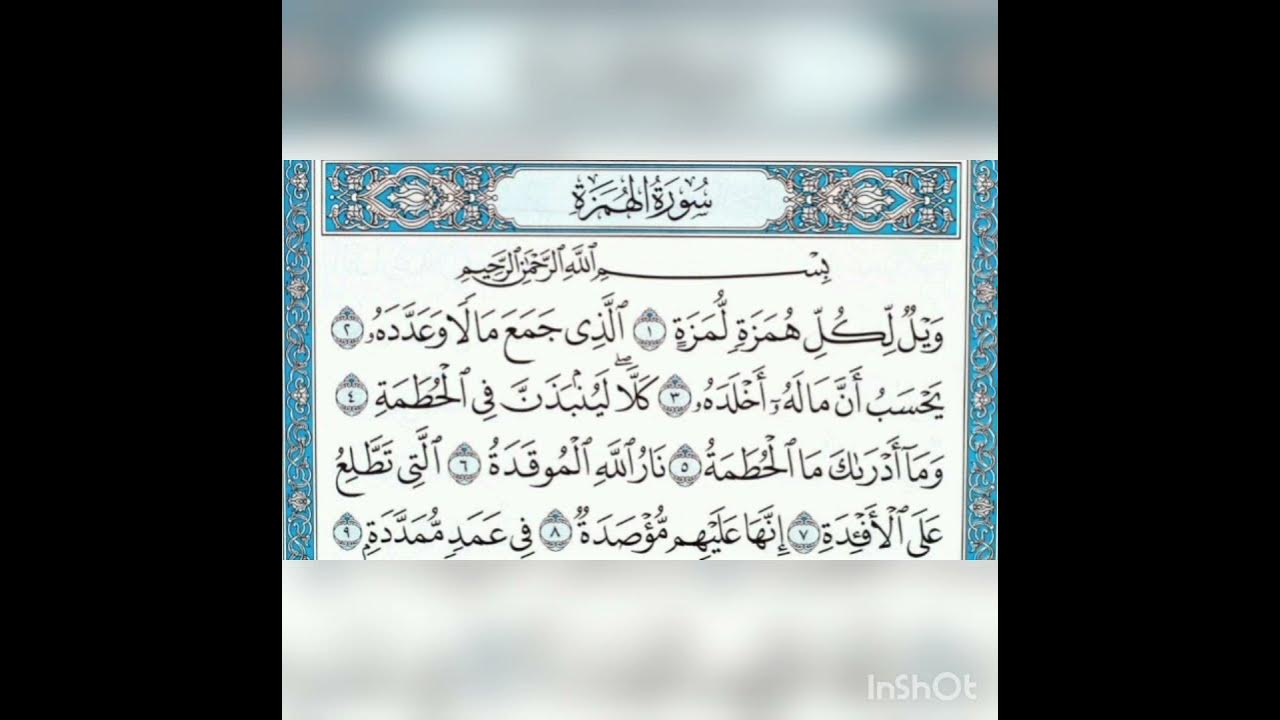 سُورَةُ الْهُمَزَةِ
بِسْمِ ٱللَّهِ ٱلرَّحْمَٰنِ ٱلرَّحِيمِ
وَيْلٌ لِّكُلِّ هُمَزَةٍ لُّمَزَةٍ ١ ٱلَّذِى جَمَعَ مَالًا وَعَدَّدَهُۥ ٢
يَحْسَبُ أَنَّ مَالَهُۥٓ أَخْلَدَهُۥ ٣ كَلَّا ۖ لَيُنۢبَذَنَّ فِى ٱلْحُطَمَةِ ٤
وَمَآ أَدْرَىٰكَ مَا ٱلْحُطَمَةُ ٥ نَارُ ٱللَّهِ ٱلْمُوقَدَةُ ٦ ٱلَّتِى تَطَّلِعُ
عَلَى ٱلْأَفْـِٔدَةِ ٧ إِنَّهَا عَلَيْهِم مُّؤْصَدَةٌ ٨ فِى عَمَدٍ مُّمَدَّدَةٍۭ ٩
InShOt